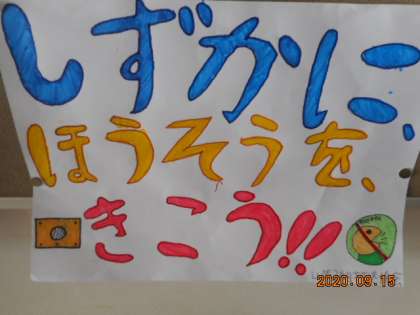 しずかに、
ほうそうを、
きこう!!
2020.09.15